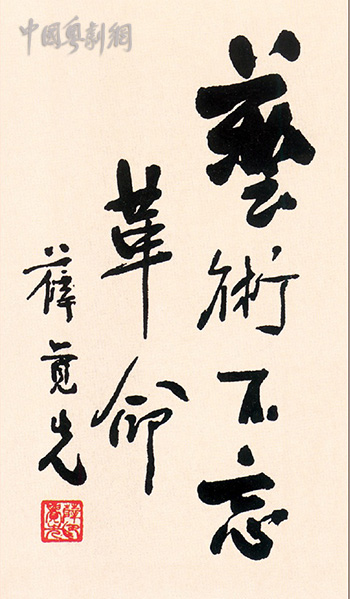 中國粵劇網
藝術不忘
革命
薛覺先